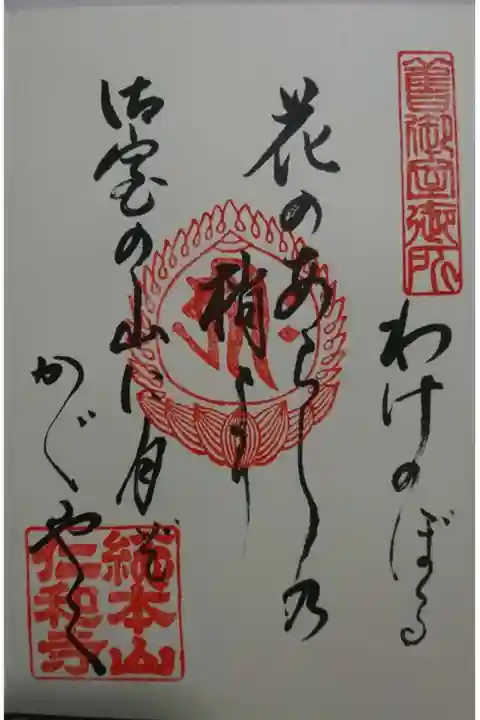 舊御室御所
わけのぼる
花のあらし乃
梢より
御室の山に月ぞ
かゞやく
総本山
仁和寺